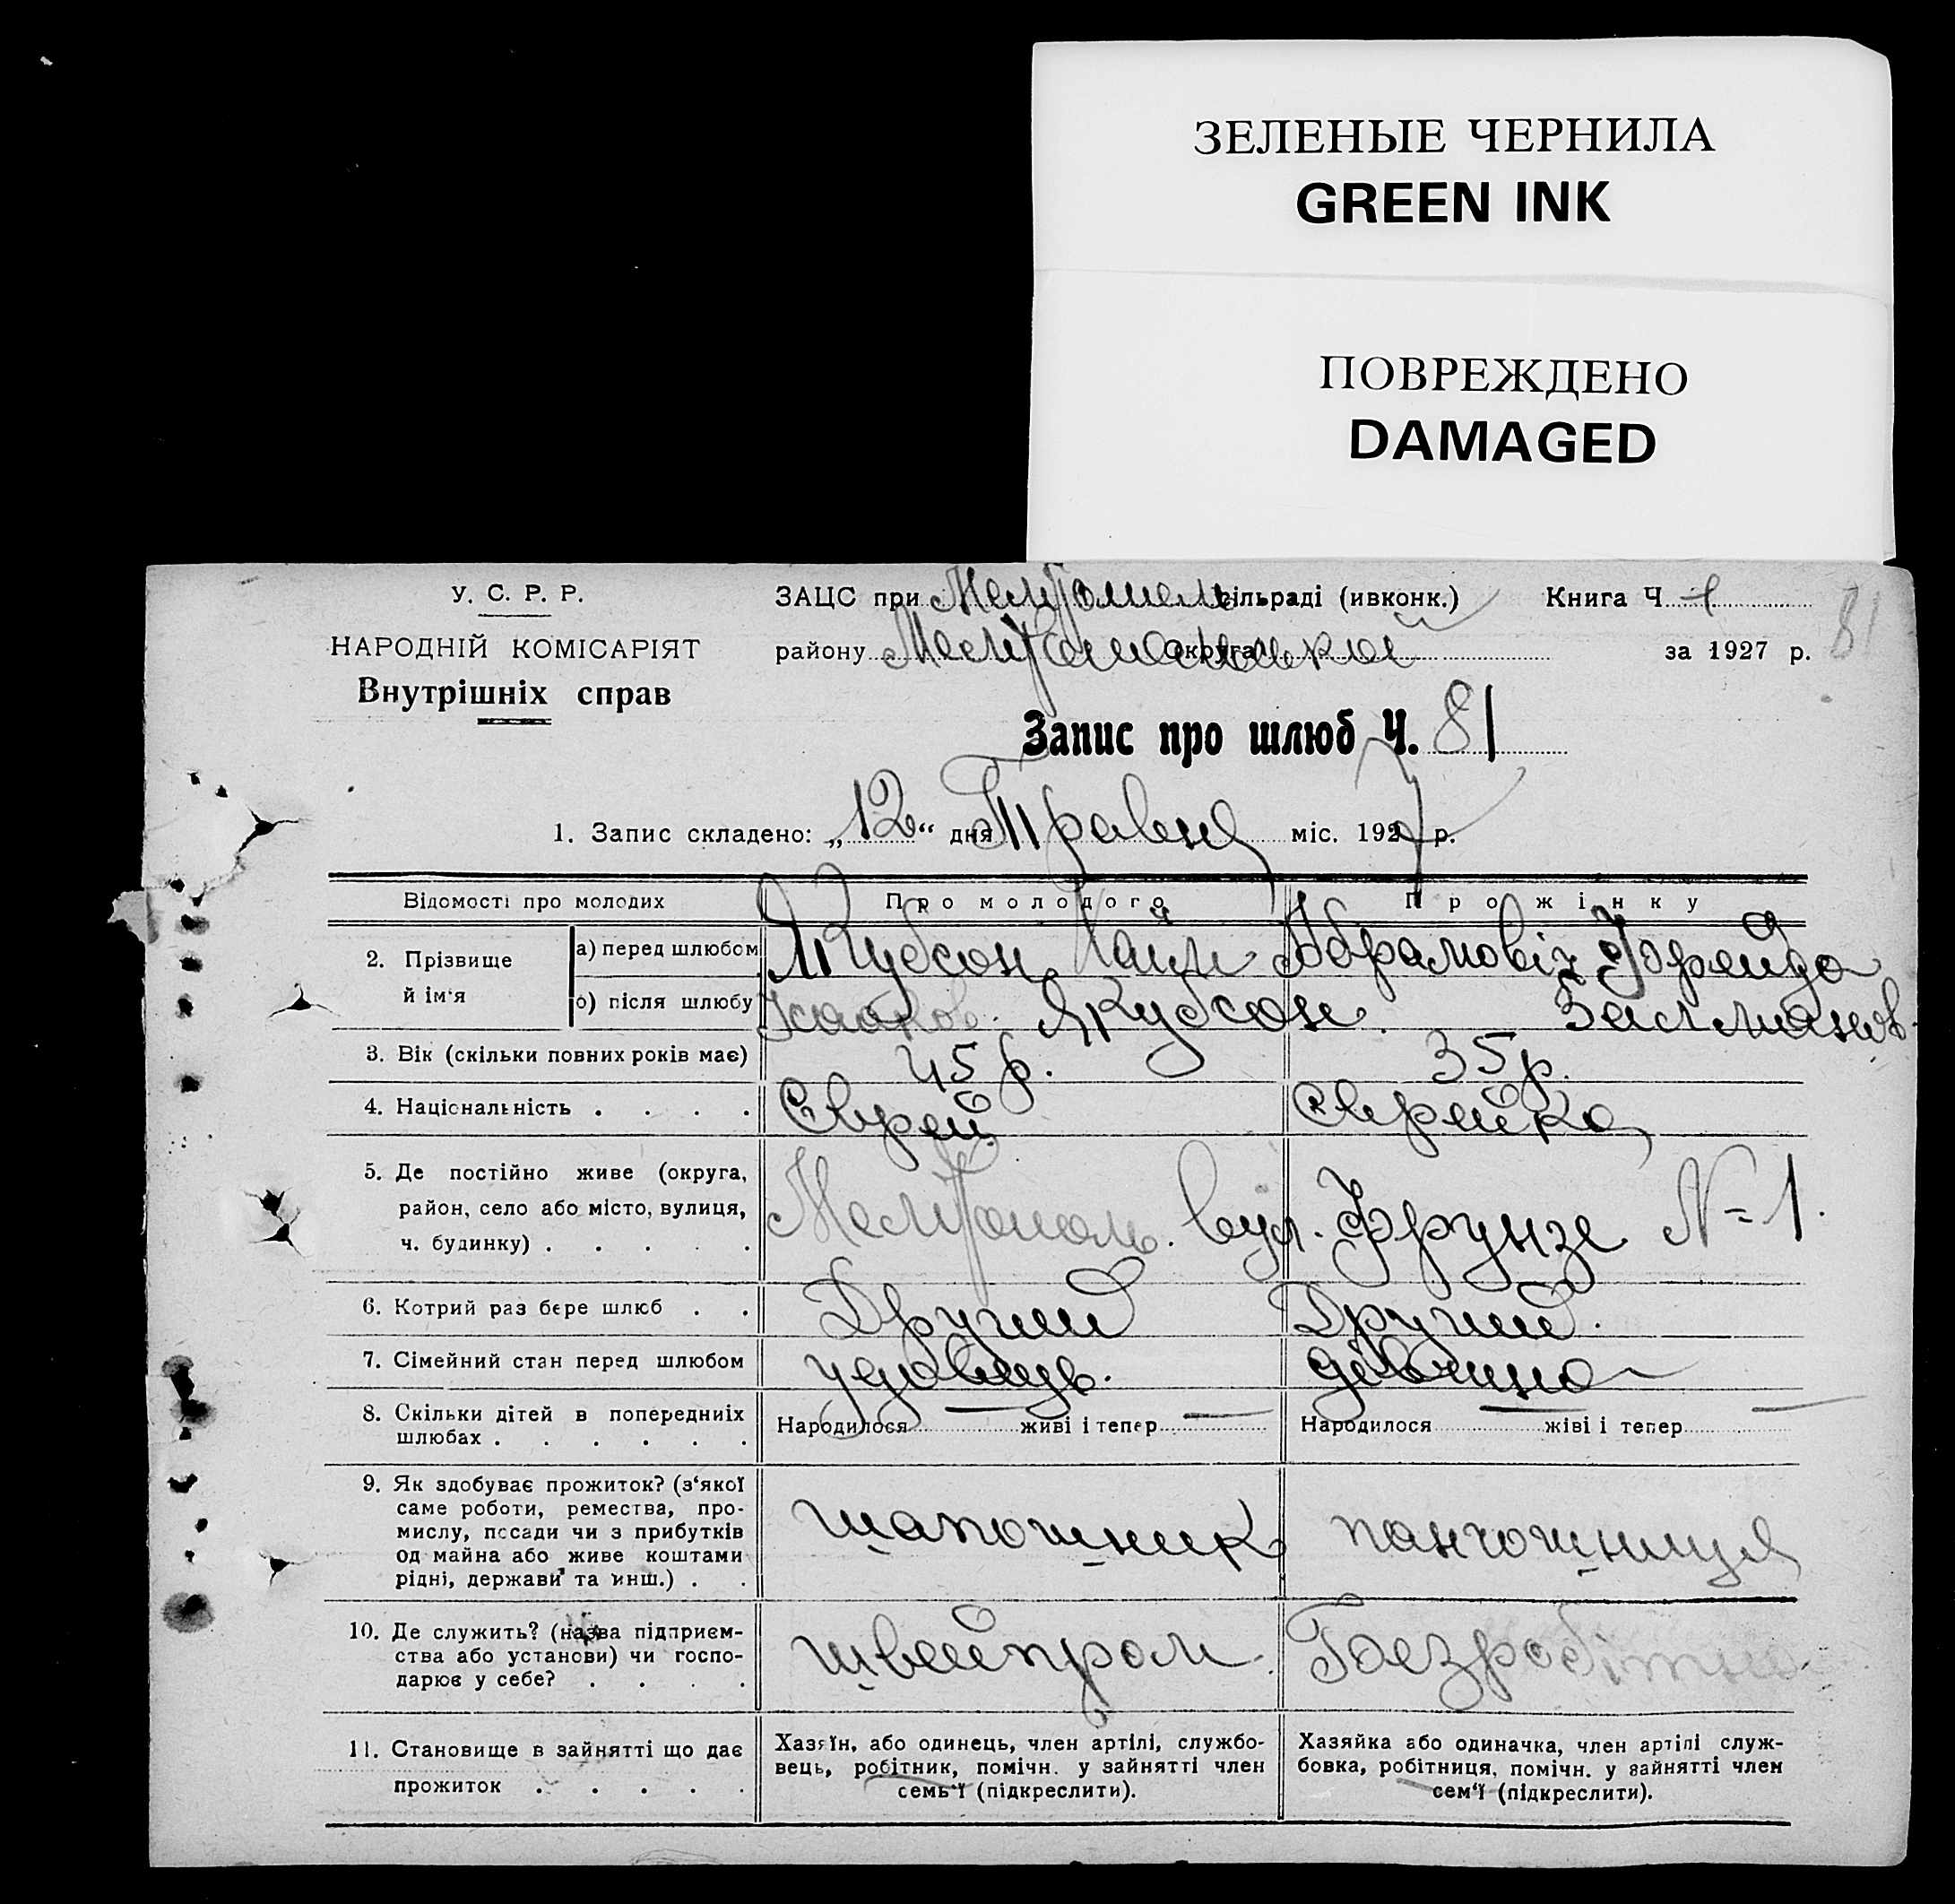 ЗЕЛЕНЫЕ ЧЕРНИЛА
GREEN INK
ПОВРЕЖДЕНО
DAMAGED
У. С. Р. Р.
НАРОДНІЙ КОМІСАРІЯТ
Внутрішніх справ
ЗАЦС при сільраді (ивконк.) Книга Ч 1
району округа за 1927 р. 81
Запис про шлюб Ч. 81
1. Запис складено: „12“ дня Травня міс. 1927 р.
Відомості про молодих Про молодого Про жінку
2. Прізвище й ім'я а) перед шлюбом Якубсон Хайм Абрамовіч Фрейда
о) після шлюбу Ісааков. Якубсон Залманов.
3. Вік (скільки повних років має) 45 р. 35 р.
4. Національність . . . . Єврей Єврейка
5. Де постійно живе (округа,
район, село або місто, вулиця,
ч. будинку) . . . . .
Мелітополь. вул. Фрунзе N=1.
6. Котрий раз бере шлюб . . Другий Другий.
7. Сімейний стан перед шлюбом удовець. дівчина
8. Скільки дітей в попередниіх
шлюбах . . . . . .
Народилося — живі і тепер — Народилося — жіві і тепер —
9. Як здобуває прожиток? (з'якої
саме роботи, ремества, про-
мислу, посади чи з прибутків
од майна або живе коштами
рідні, держави та инш.) . .
шапошник панчошниця
10. Де служить? (назва підприєм-
ства або установи) чи госпо-
дарює у себе? . . . .
швейпром. Безробітна.
11. Становище в зайнятті що дає
прожиток . . . . .
Хазяїн, або одинець, член артілі, службо-
вець, робітник, помічн. у зайнятті член
семь'ї (підкреслити).
Хазяйка або одиначка, член артілі служ-
бовка, робітниця, помічн. у зайнятті член
сем'ї (підкреслити).